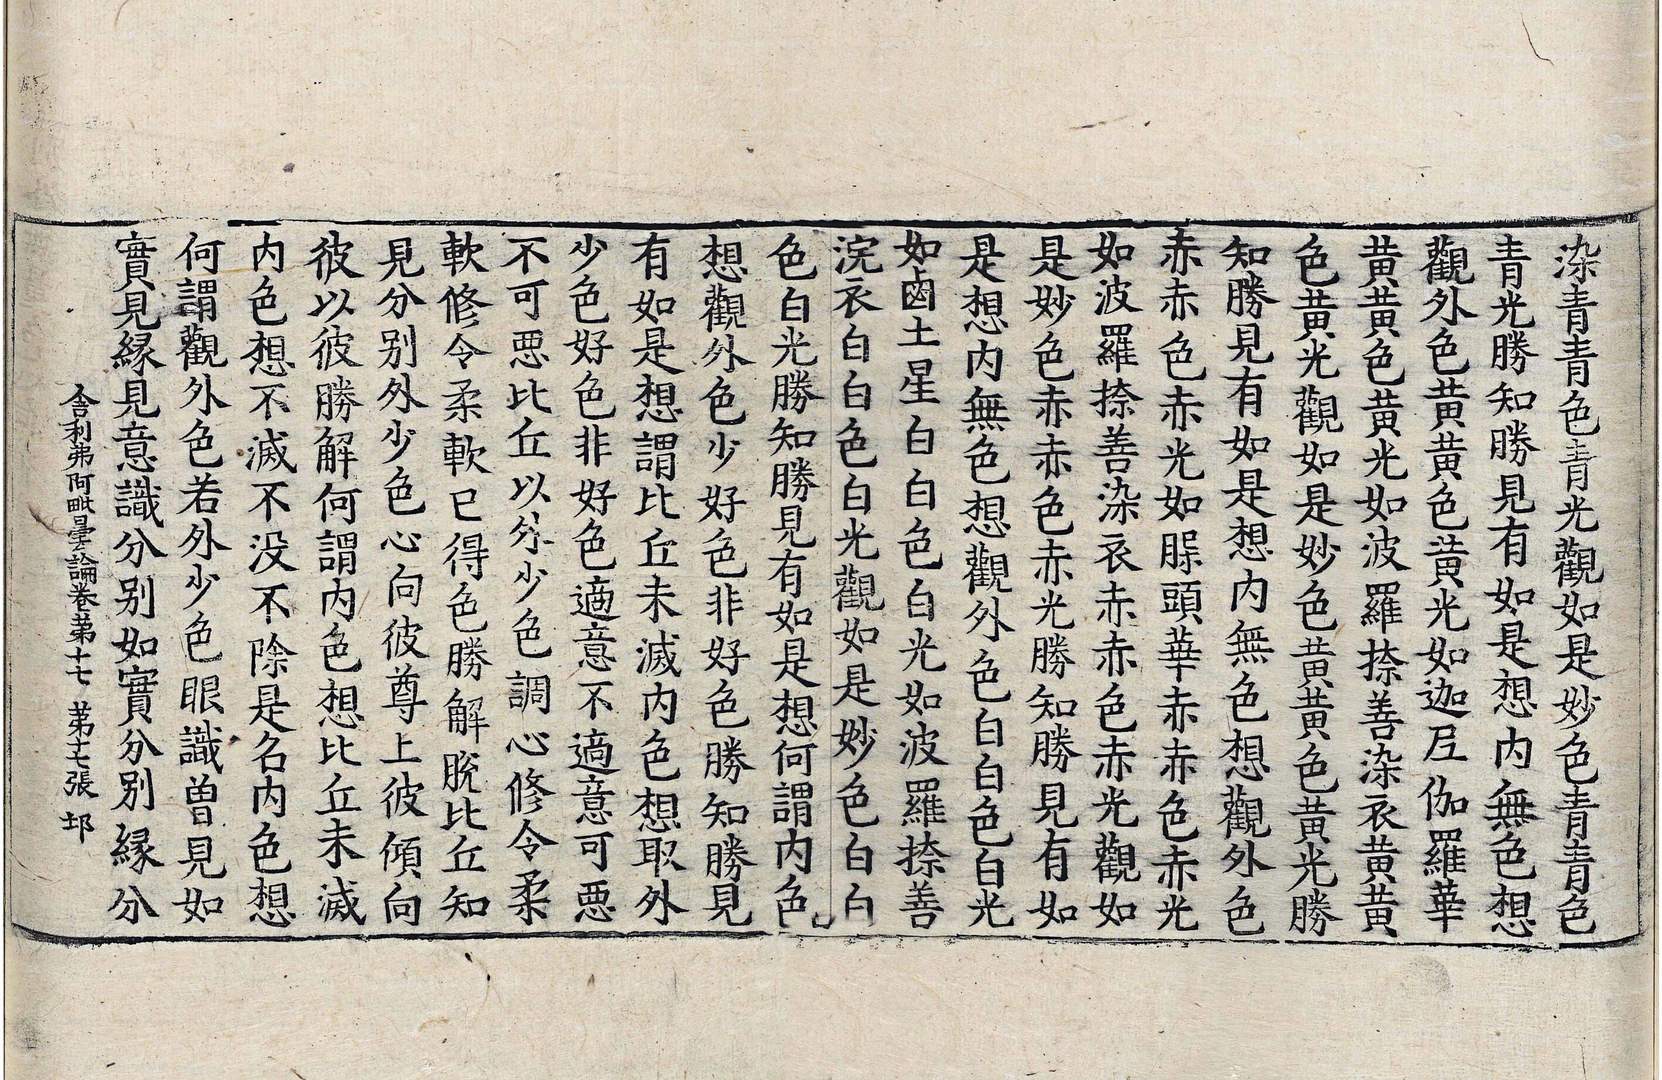 染青青色青光觀如是妙色青青色
青光勝知勝見有如是想内無色想
觀外色黄黄色黄光如迦尼伽羅華
黄黄色黄光如波羅捺善染衣黄黄
色黄光觀如是妙色黄黄色黄光勝
知勝見有如是想内無色想觀外色
赤赤色赤光如𦜕頭華赤赤色赤光
如波羅捺善染衣赤赤色赤光觀如
是妙色赤赤色赤光勝知勝見有如
是想内無色想觀外色白白色白光
如鹵土星白白色白光如波羅捺善
浣衣白白色白光觀如是妙色白白
色白光勝知勝見有如是想何謂内色
想觀外色少好色非好色勝知勝見
有如是想謂比丘未滅内色想取外
少色好色非好色適意不適意可惡
不可惡比丘以外少色調心修令柔
軟修令柔軟已得色勝解脱比丘知
見分别外少色心向彼尊上彼傾向
彼以彼勝解何謂内色想比丘未滅
内色想不滅不没不除是名内色想
何謂觀外色若外少色眼識曽見如
實見縁見意識分别如實分别縁分
舎利弗阿毗曇論卷第十七 第十七張 𨙻